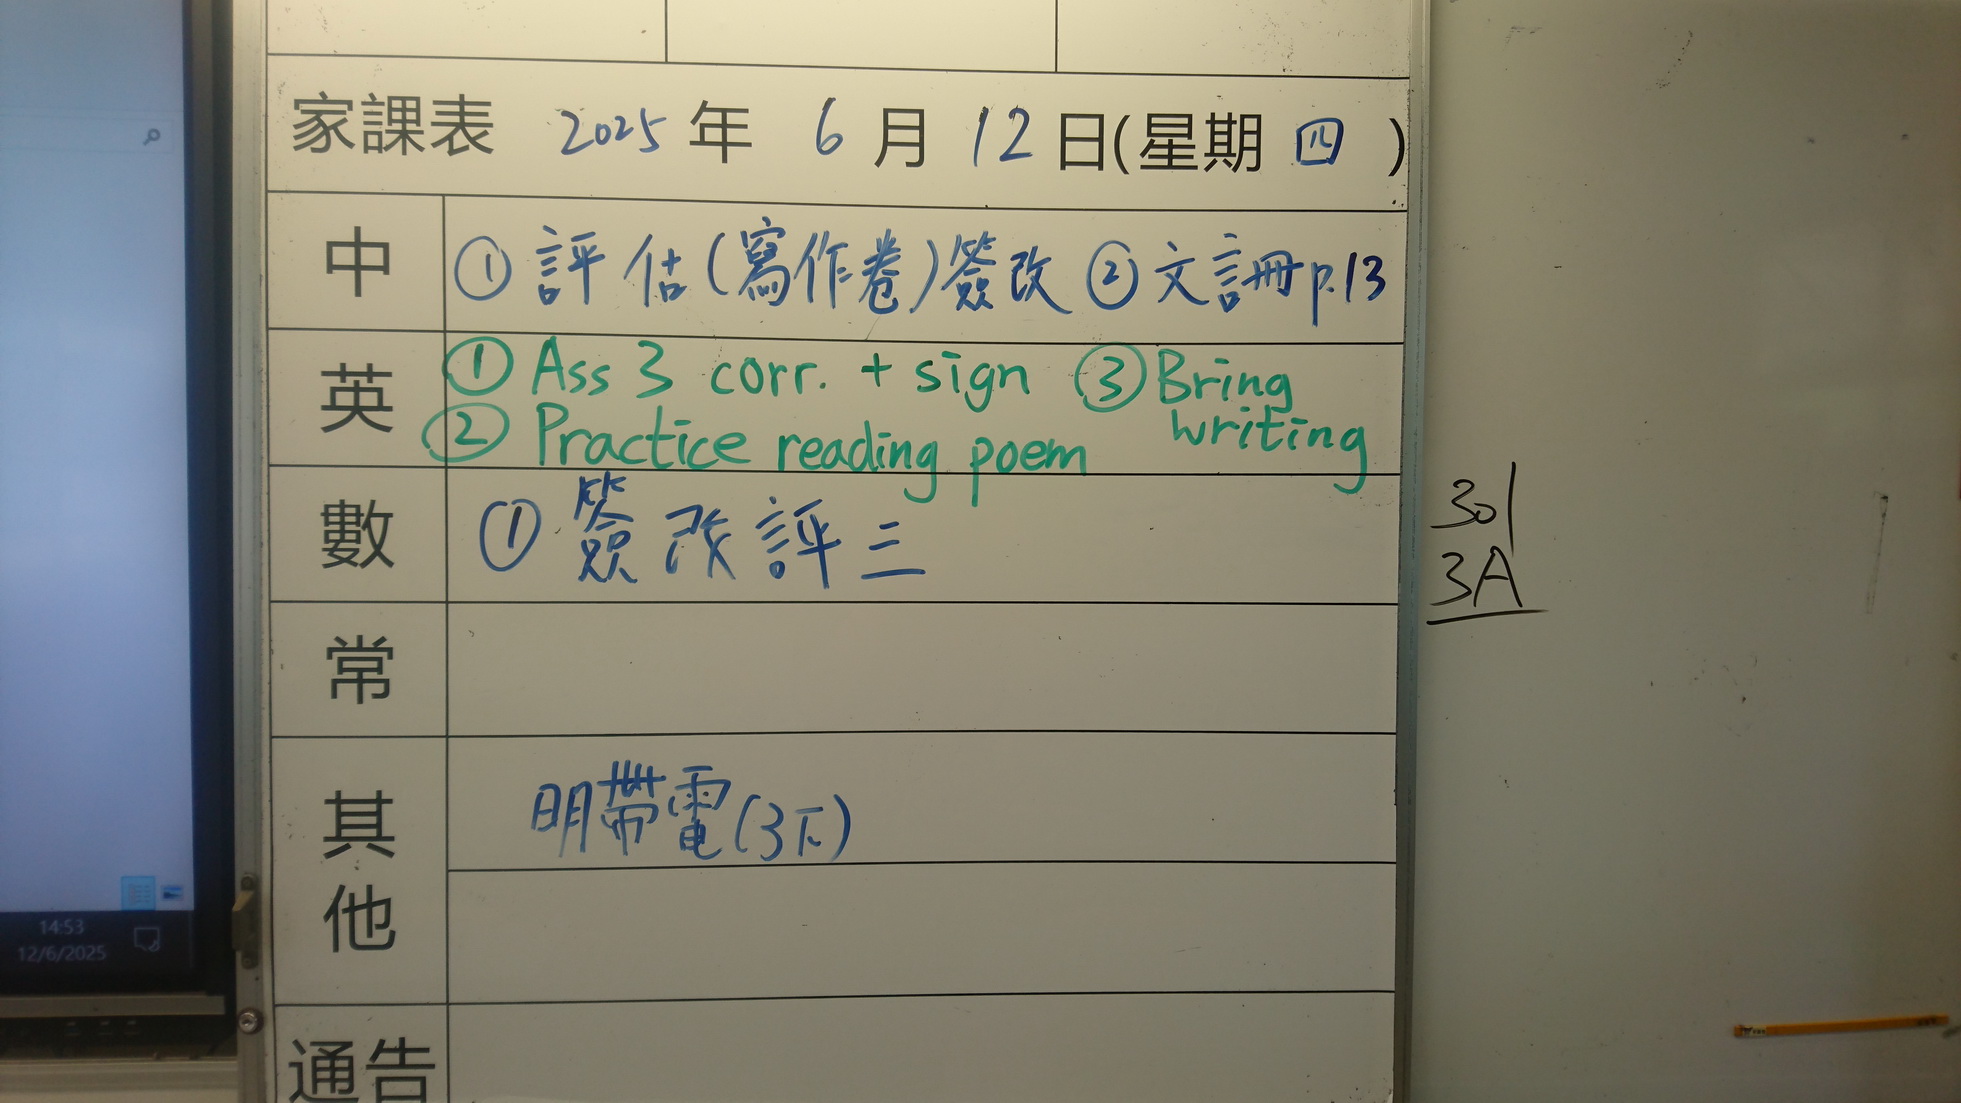 家課表 2025 年 6 月 12 日(星期 四 )
中 ① 評估(寫作卷)簽改 ② 文詞冊p.13
英 ① Ass 3 corr. + sign ③ Bring writing
② Practice reading poem
數 ① 簽改評三
常
其他 明帶電(3下)
通告
301
3A
14:53
12/6/2025